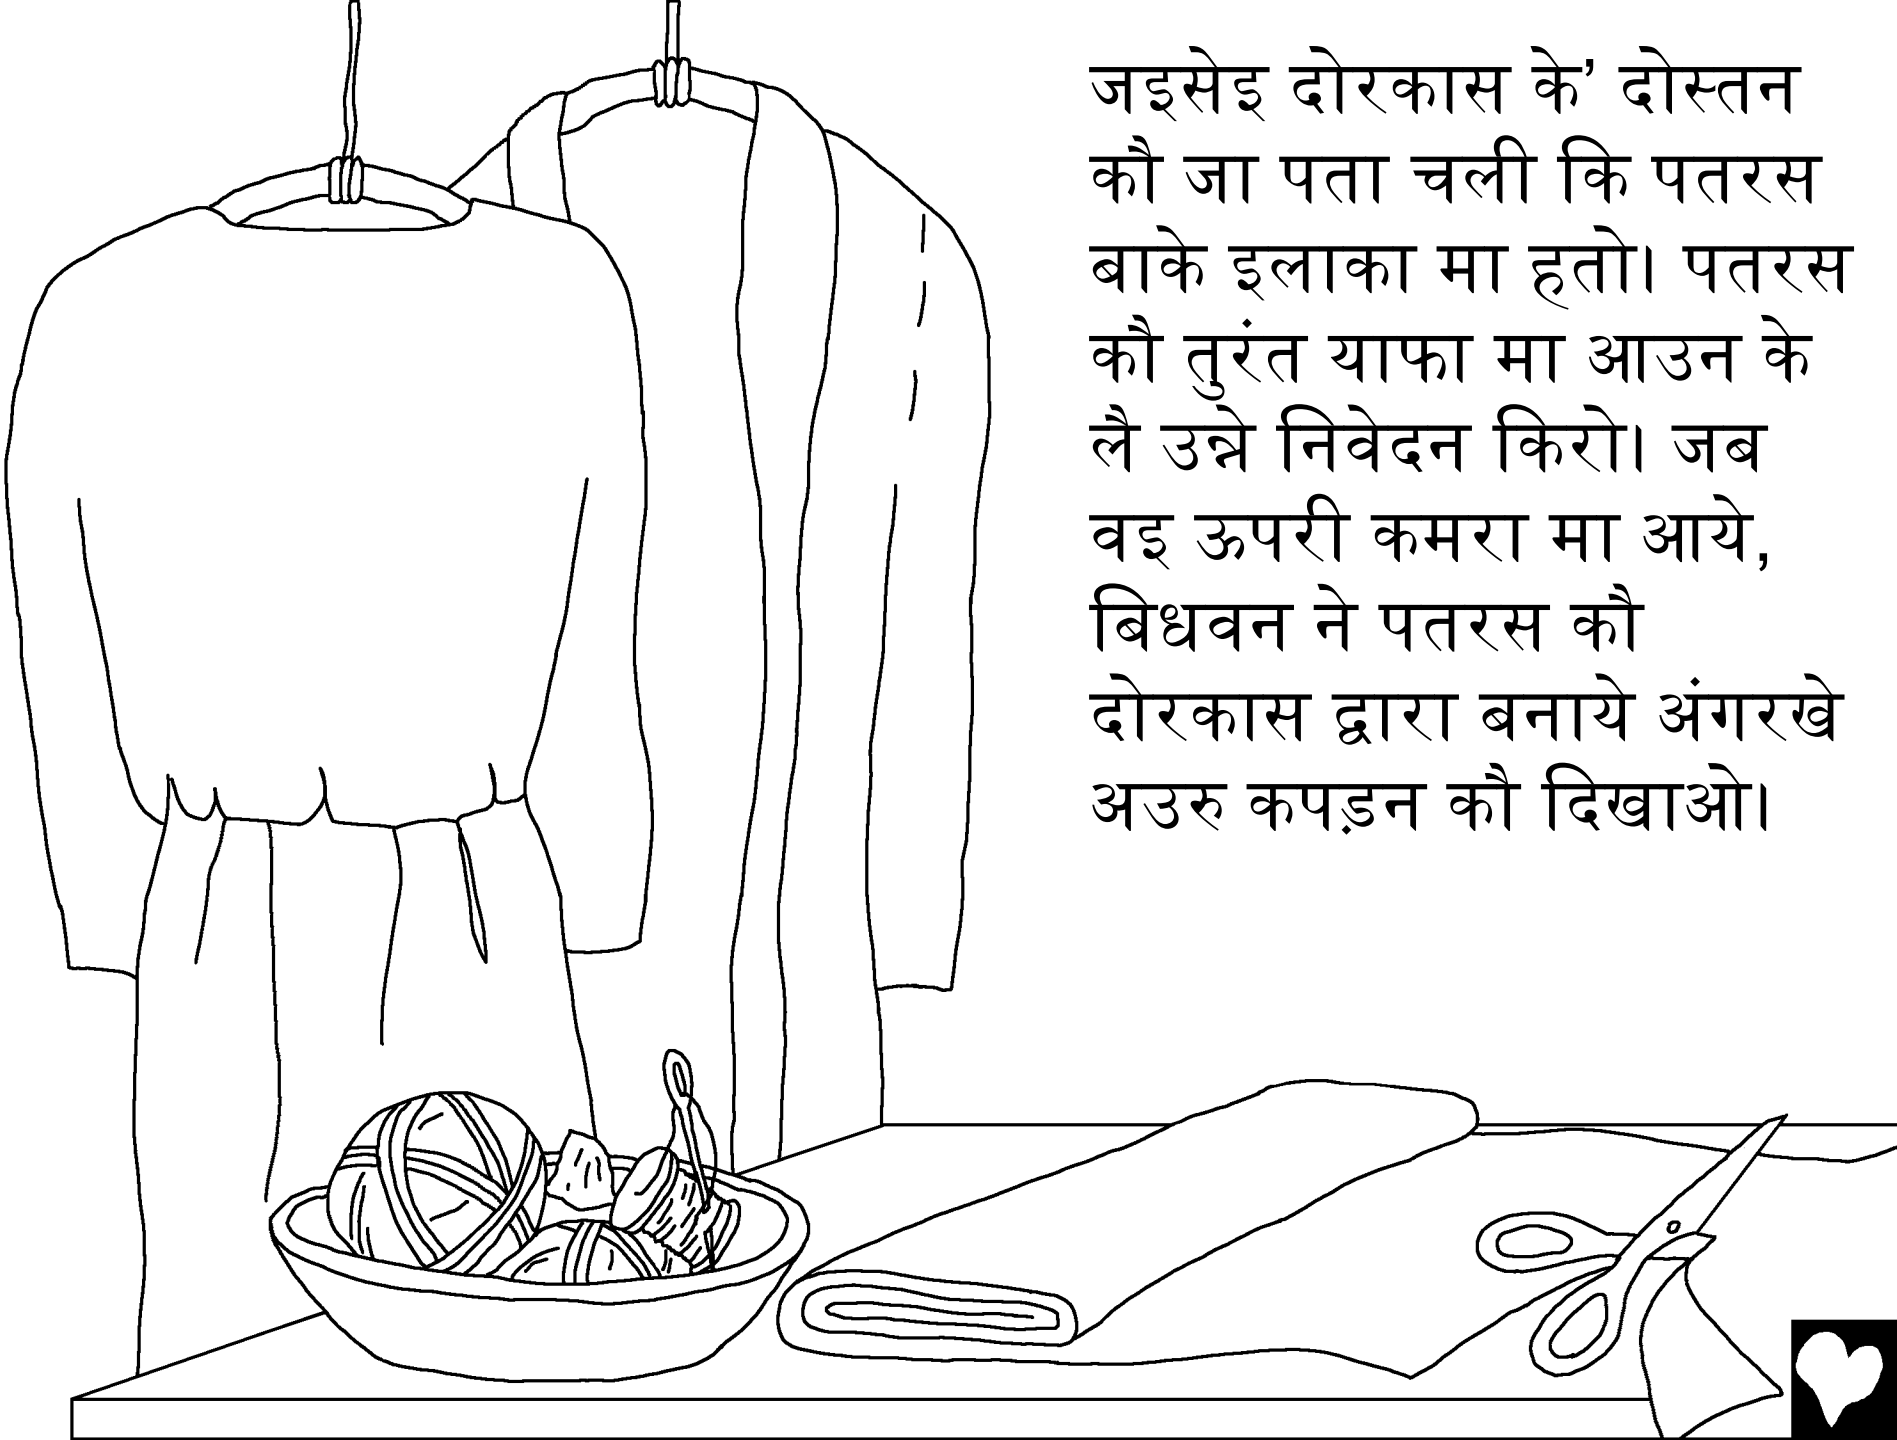 जइसेइ दोरकास के’ दोस्तन
कौ जा पता चली कि पतरस
बाके इलाका मा हतो। पतरस
कौ तुरंत याफा मा आउन के
लै उन्ने निवेदन किरो। जब
वइ ऊपरी कमरा मा आये,
बिधवन ने पतरस कौ
दोरकास द्वारा बनाये अंगरखे
अउरु कपड़न कौ दिखाओ।